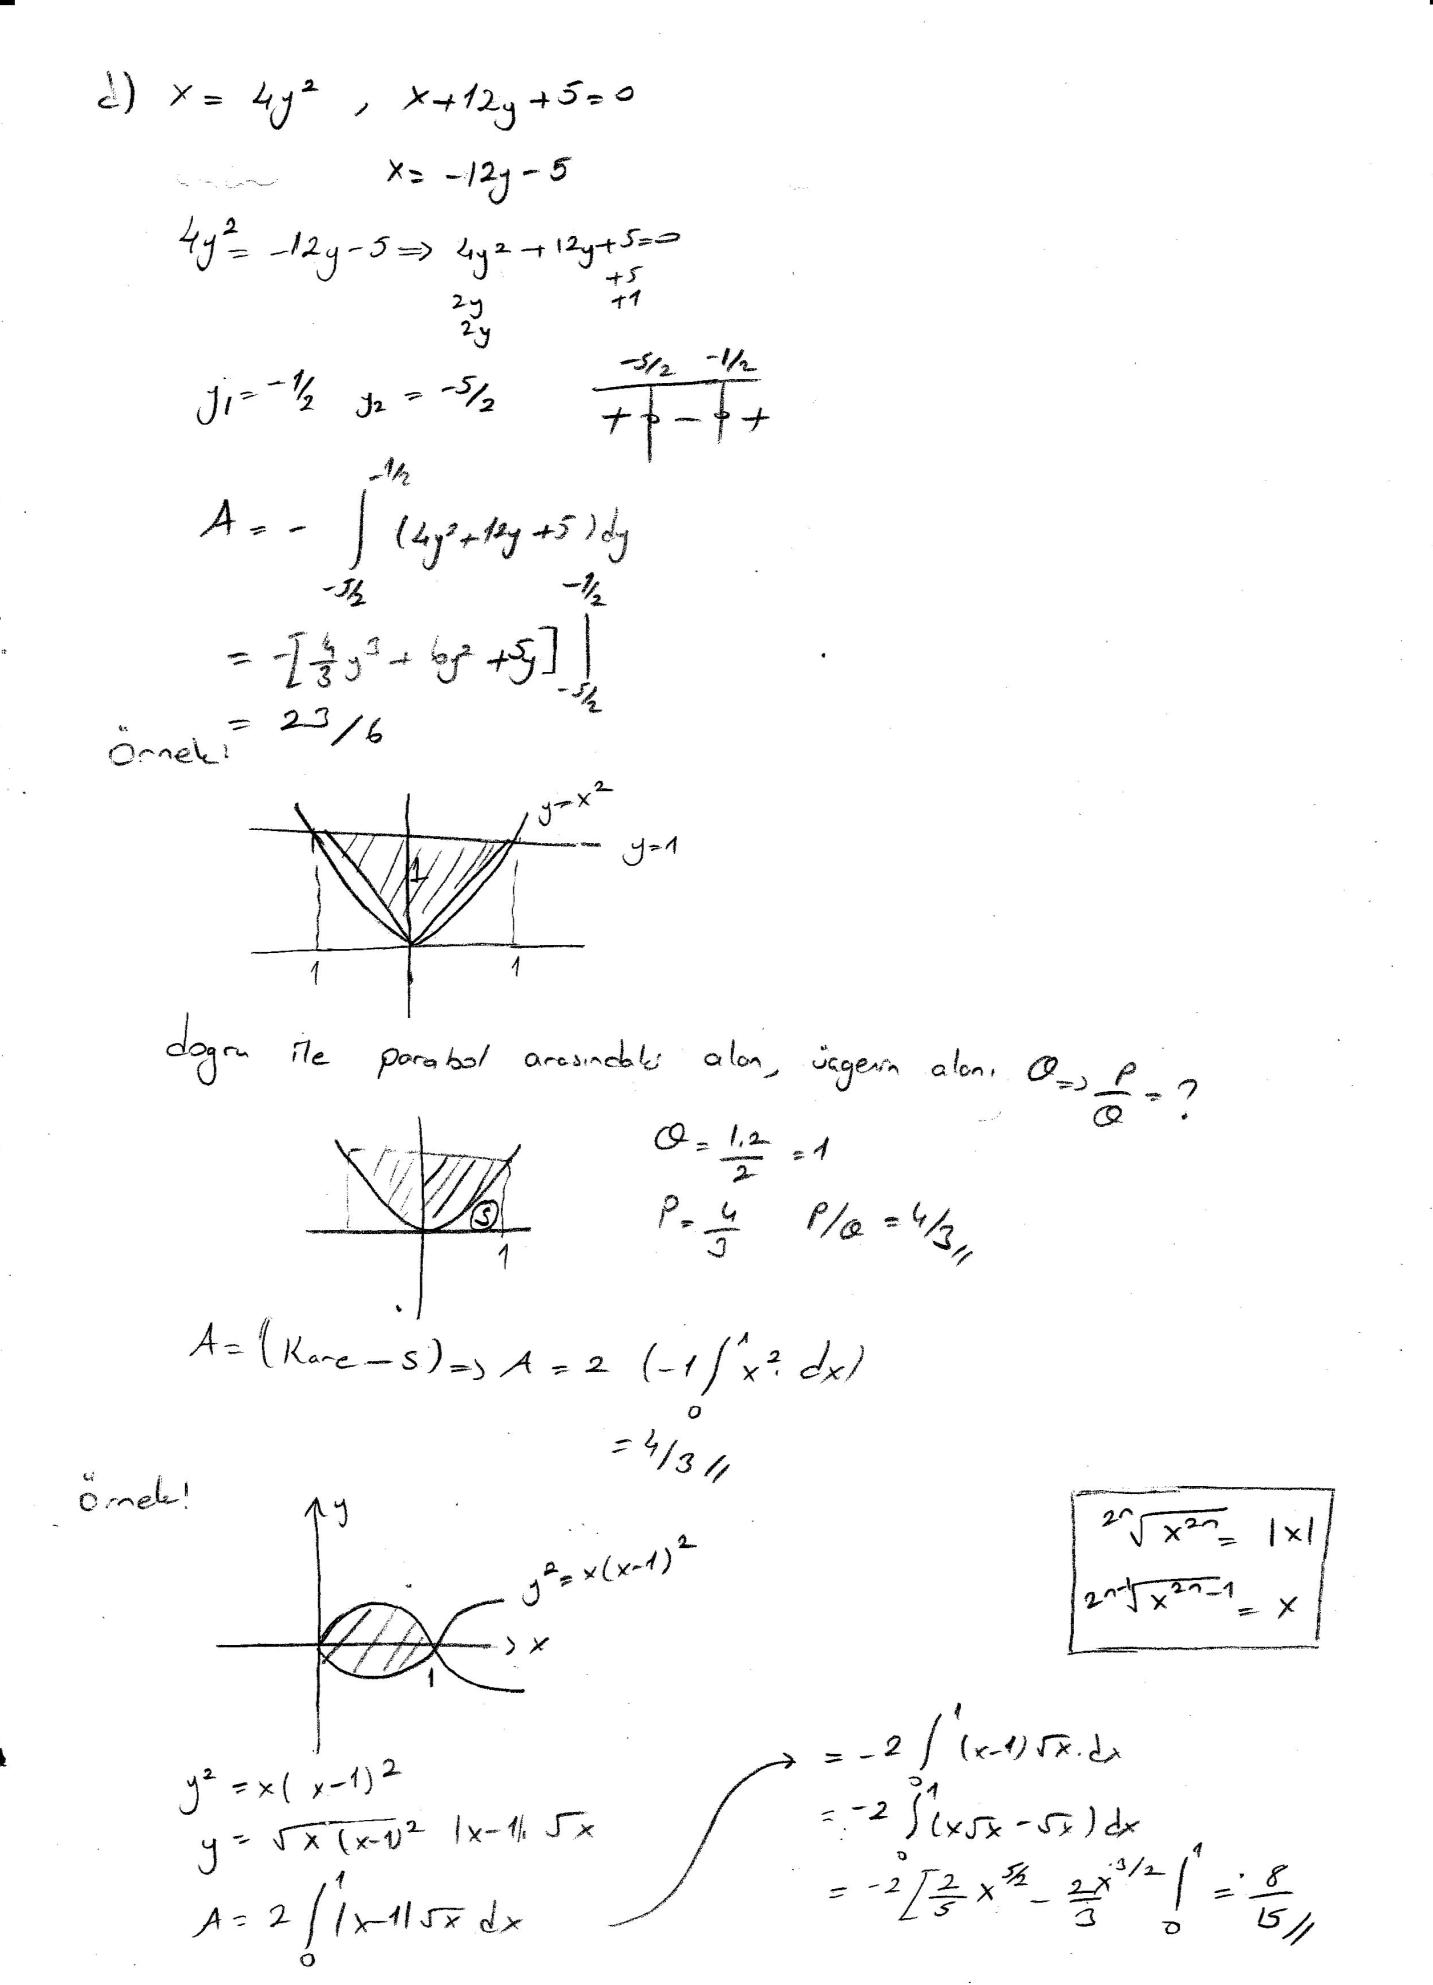 d) x = 4y² , x+12y+5=0
x= -12y-5
4y² = -12y-5 ⇒ 4y²+12y+5=0
+5
2y +1
2y
y₁=-1/2 y₂ = -5/2
-5/2 -1/2
+ 0 - 0 +
A = - ∫_{-5/2}^{-1/2} (4y²+12y+5)dy
= -[4/3 y³ + 6y² +5y] |_{-5/2}^{-1/2}
= 23/6
Örnek:
y=x²
y=1
1
1 1
doğru ile parabol arasındaki alan, üçgenin alanı Q ⇒ P/Q = ?
Q = 1.2/2 = 1
P = 4/3 P/Q = 4/3 //
S
1
A = (Kare - S) ⇒ A = 2 (-1 ∫_0^1 x². dx)
= 4/3 //
Örnek!
y
y² = x(x-1)²
x
1
2n√x²ⁿ = |x|
2n-1√x²ⁿ⁻¹ = x
y² = x(x-1)²
y = √x(x-1)² |x-1|. √x
A = 2 ∫_0^1 |x-1|√x dx
→ = -2 ∫_0^1 (x-1)√x.dx
= -2 ∫_0^1 (x√x - √x) dx
= -2 [2/5 x^{5/2} - 2x^{3/2}/3 |_0^1 = 8/15 //